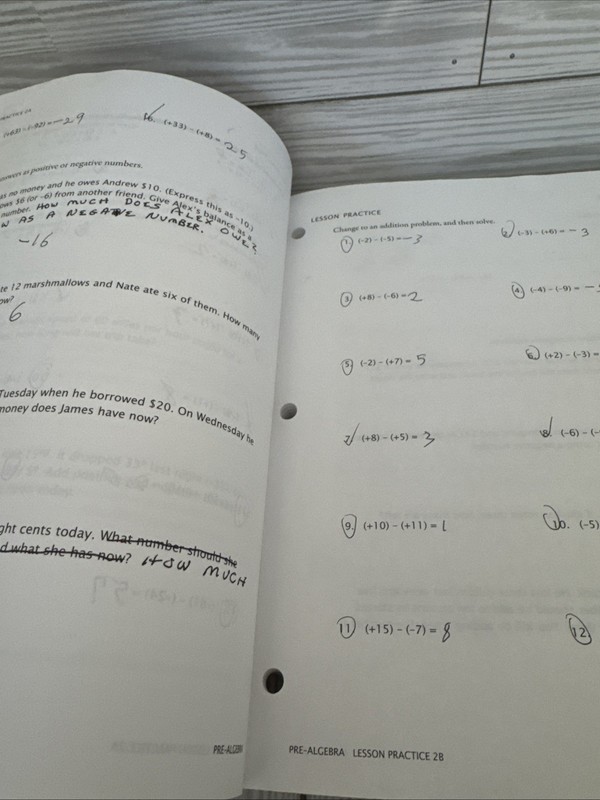 (+63) – (–92) = –29
16. (+33) – (+8) = 25
answers as positive or negative numbers.
as no money and he owes Andrew $10. (Express this as –10.)
owes $6 (or –6) from another friend. Give Alex's balance as a
number. HOW MUCH DOES ALEX OWE?
AS A NEGATIVE NUMBER.
–16
te 12 marshmallows and Nate ate six of them. How many
ow?
6
Tuesday when he borrowed $20. On Wednesday he
money does James have now?
ght cents today. What number should she
d what she has now? HOW MUCH
PRE-ALGEBRA
LESSON PRACTICE
Change to an addition problem, and then solve.
1. (–2) – (–5) = –3
2. (–3) – (+6) = –3
3. (+8) – (–6) = 2
4. (–4) – (–9) = –
5. (–2) – (+7) = 5
6. (+2) – (–3) =
7. (+8) – (+5) = 3
8. (–6) – (–
9. (+10) – (+11) = 1
10. (–5)
11. (+15) – (–7) = 8
12.
PRE-ALGEBRA LESSON PRACTICE 2B